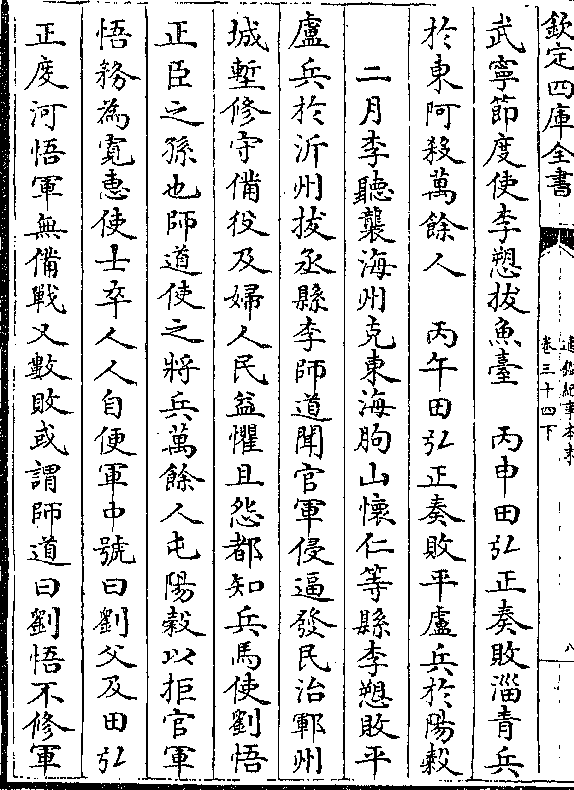 欽定四庫全書
通鑑紀事本末
卷三十四下
八
武寧節度使李愬拔魚臺　丙申田弘正奏敗淄青兵
於東阿殺萬餘人　丙午田弘正奏敗平盧兵於陽穀
二月李聽襲海州克東海朐山懷仁等縣李愬敗平
盧兵於沂州拔丞縣李師道聞官軍侵逼發民治鄆州
城塹修守備役及婦人民益懼且怨都知兵馬使劉悟
正臣之孫也師道使之將兵萬餘人屯陽穀以拒官軍
悟務為寛惠使士卒人人自便軍中號曰劉父及田弘
正度河悟軍無備戰又數敗或謂師道曰劉悟不修軍